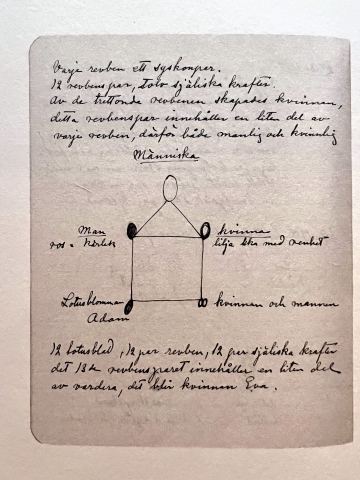 Varje revben ett syskonpar.
12 revbenspar, tolv själiska krafter.
Av de trettonde revbenen skapades kvinnan,
detta revbenspar innehåller en liten del av
varje revben, därför både manlig och kvinnlig
Människa
Man
ros = kärlek
kvinna
lilja lika med renhet
Lotusblomman
Adam
kvinnan och mannen
12 lotusblad, 12 par revben, 12 par själiska krafter
det 13de revbensparet innehåller en liten del
av vardera, det blir kvinnan Eva.